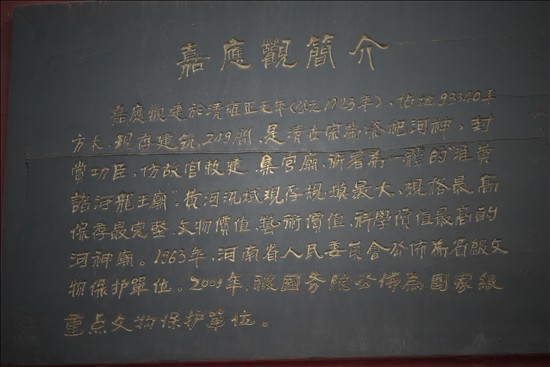 嘉應觀簡介
嘉應觀建於清雍正元年(公元1723年),佔地93340平
方米,現存建筑249間,是清世宗為祭祀河神,封
賞功臣,仿故宮敕建,集宮廟衙署為一體的"淮黃
諸河龍王廟",黄河流域現存規模最大、規格最高
保存最完整、文物價值、藝術價值、科學價值最高的
河神廟。1963年,河南省人民委員會公佈為省級文
物保护單位。2009年,被國务院公佈為國家級
重点文物保护單位。